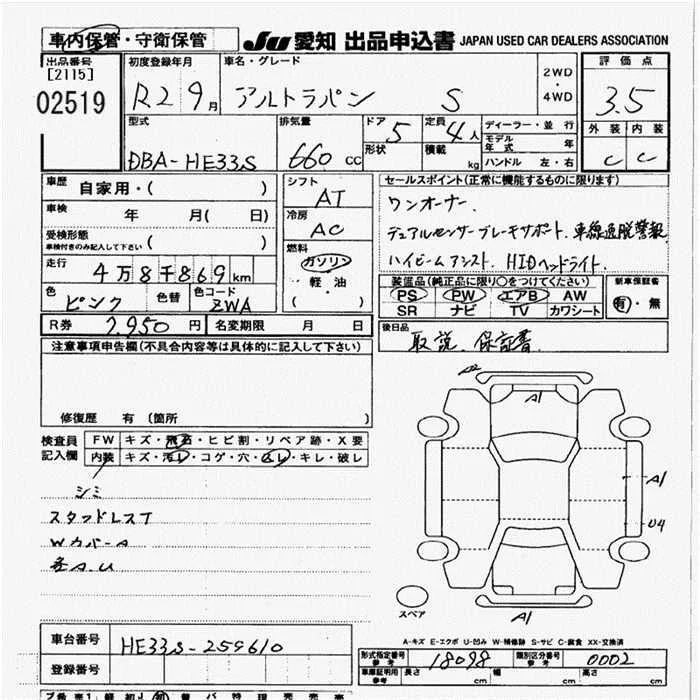 車内保管・守衛保管
JU 愛知 出品申込書 JAPAN USED CAR DEALERS ASSOCIATION
出品番号
[2115]
02519
初度登録年月
R2 9月
車名・グレード
アルトラパン S
2WD
・
4WD
評価点
3.5
外装 内装
C C
型式
DBA-HE33S
排気量
660 CC
ドア 5
形状
定員 4人
積載 kg
ディーラー・並行
モデル年式 年
ハンドル 左・右
車歴 自家用・( )
車検 年 月( 日)
受検形態
車検付きのみ記入して下さい ( )
走行 4万8千869km
色 ピンク 色替 色コード ZWA
シフト
AT
冷房
AC
燃料
ガソリン
・
軽油
( )
セールスポイント(正常に機能するものに限ります)
ワンオーナー.
デュアルセンサーブレーキサポート.車線逸脱警報.
ハイビームアシスト. HIDヘッドライト.
装備品(純正品に限り○をつけてください)
PS PW エアB AW
SR ナビ TV カワシート
新車保証書
有・無
R券 7,950円 名変期限 月 日
後日品
取説. 保証書.
注意事項申告欄(不具合内容等は具体的に記入して下さい)
修復歴 有 (箇所 )
検査員
記入欄
FW キズ・飛石・ヒビ割・リペア跡・X要
内装 キズ・汚レ・コゲ・穴・スレ・キレ・破レ
シミ
スタッドレスT
Wカバー A
各A.U
A2
A1
A1
U4
A1
スペア
A-キズ E-エクボ U-凹み W-補修跡 S-サビ C-腐食 XX-交換済
車台番号 HE33S-259610
登録番号
形式指定番号
参考
18098
類別区分番号
参考
0002
車庫証明用
参考
長さ cm 幅 cm 高さ cm